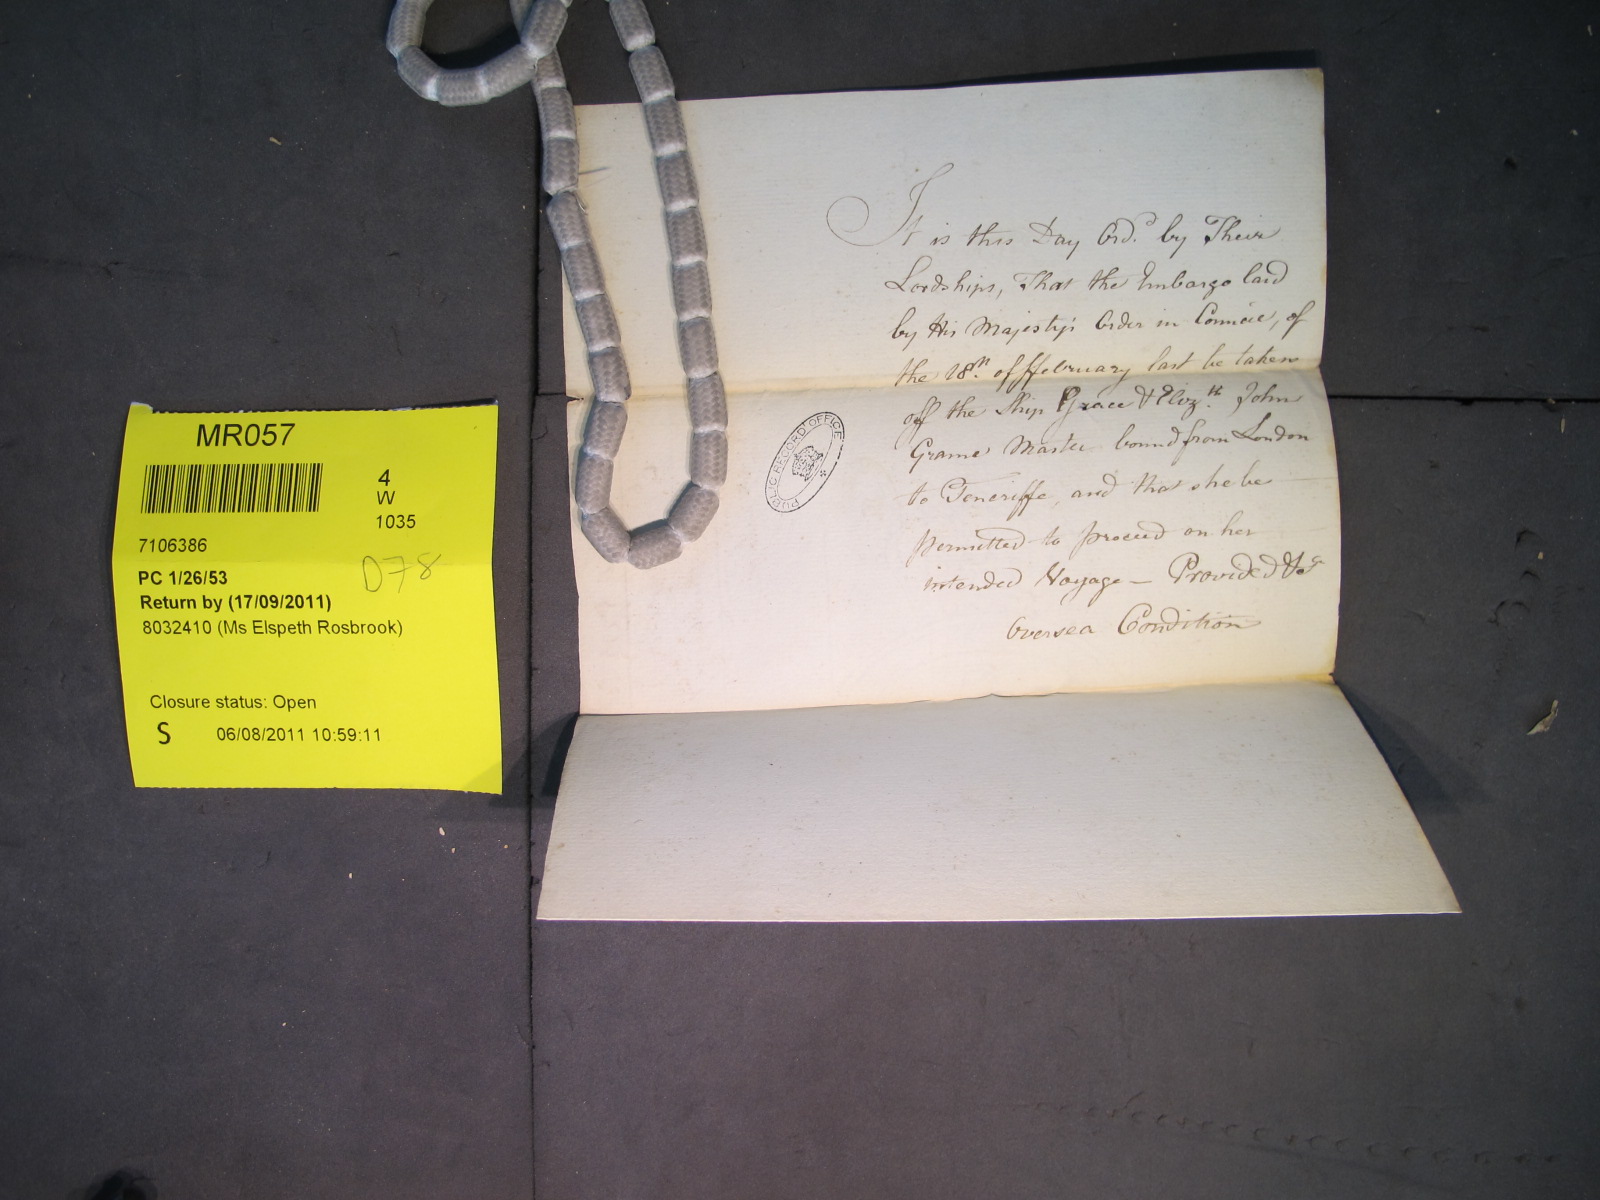 MR057
4
W
1035
7106386
D78
PC 1/26/53
Return by (17/09/2011)
8032410 (Ms Elspeth Rosbrook)
Closure status: Open
S 06/08/2011 10:59:11
PUBLIC RECORD OFFICE
It is this Day Ord.d by Their
Lordships, That the Embargo laid
by His Majesty's Order in Council, of
the 18th. of ffebruary last be taken
off the Ship Grace & Eliz.th John
Grame Master bound from London
to Teneriffe, and that she be
permitted to proceed on her
intended Voyage — Provided &c
Oversea Condition